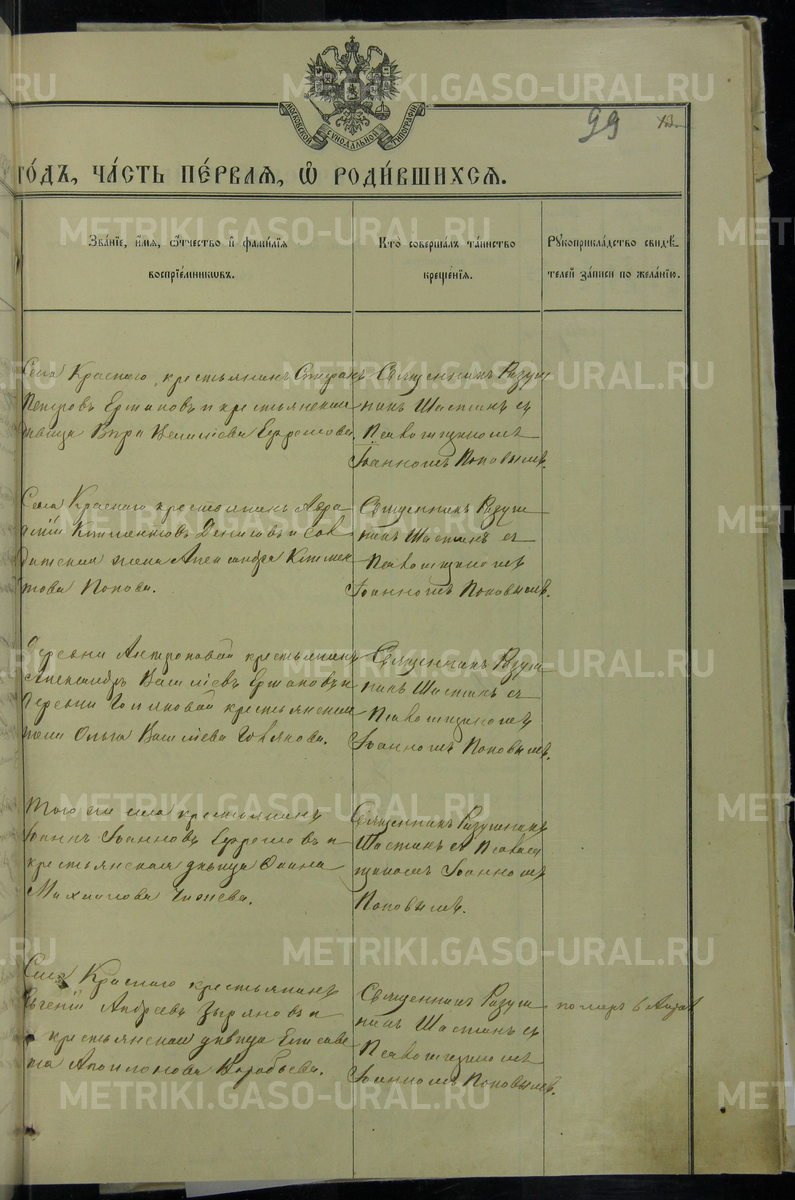 МОСКОВСКОЙ СѴНОДАЛЬНОЙ ТИПОГРАФІИ
99
го́дъ, ча́сть пе́рваѧ, ѡ҆ роди́вшихсѧ.
Зва́нїе, и҆́мѧ, ѻ҆́тчество и҆ фами́лїѧ
воспрїе́мникѡвъ.
Кто̀ соверша́лъ та́инство
креще́нїѧ.
Рꙋкоприкла́дство свидѣ́-
телей за́писи по жела́нїю.
Села Краснаго, крестьянинъ Стефанъ
Петровъ Ермаковъ и крестьянская
дѣвица Вѣра
Священникъ
никъ Шастинъ съ
Псаломщикомъ
Іоанномъ Поповымъ.
Села Краснаго крестьянинъ
Климентовъ Денисовъ и Сол
датская жена Александра Климен
това Попова.
Священникъ
никъ Шастинъ съ
Псаломщикомъ
Іоанномъ Поповымъ.
Деревни Антроповой крестьянинъ
Александръ Васильевъ Ермаковъ и
Деревни крестьянская
жена Ольга Васильева
Священникъ
никъ Шастинъ съ
Псаломщикомъ
Іоанномъ Поповымъ.
Того же села крестьянинъ
Іоаннъ Іоанновъ и
крестьянская дѣвица
Михаилова
Священникъ
Шастинъ съ Псалом
щикомъ Іоанномъ
Поповымъ.
Села Краснаго крестьянинъ
Евгеній Андреевъ Зыряновъ и
крестьянская дѣвица Елисаве
та Аполлонова Воробьева.
Священникъ
никъ Шастинъ съ
Псаломщикомъ
Іоанномъ Поповымъ.
померъ 6
METRIKI.GASO-URAL.RU